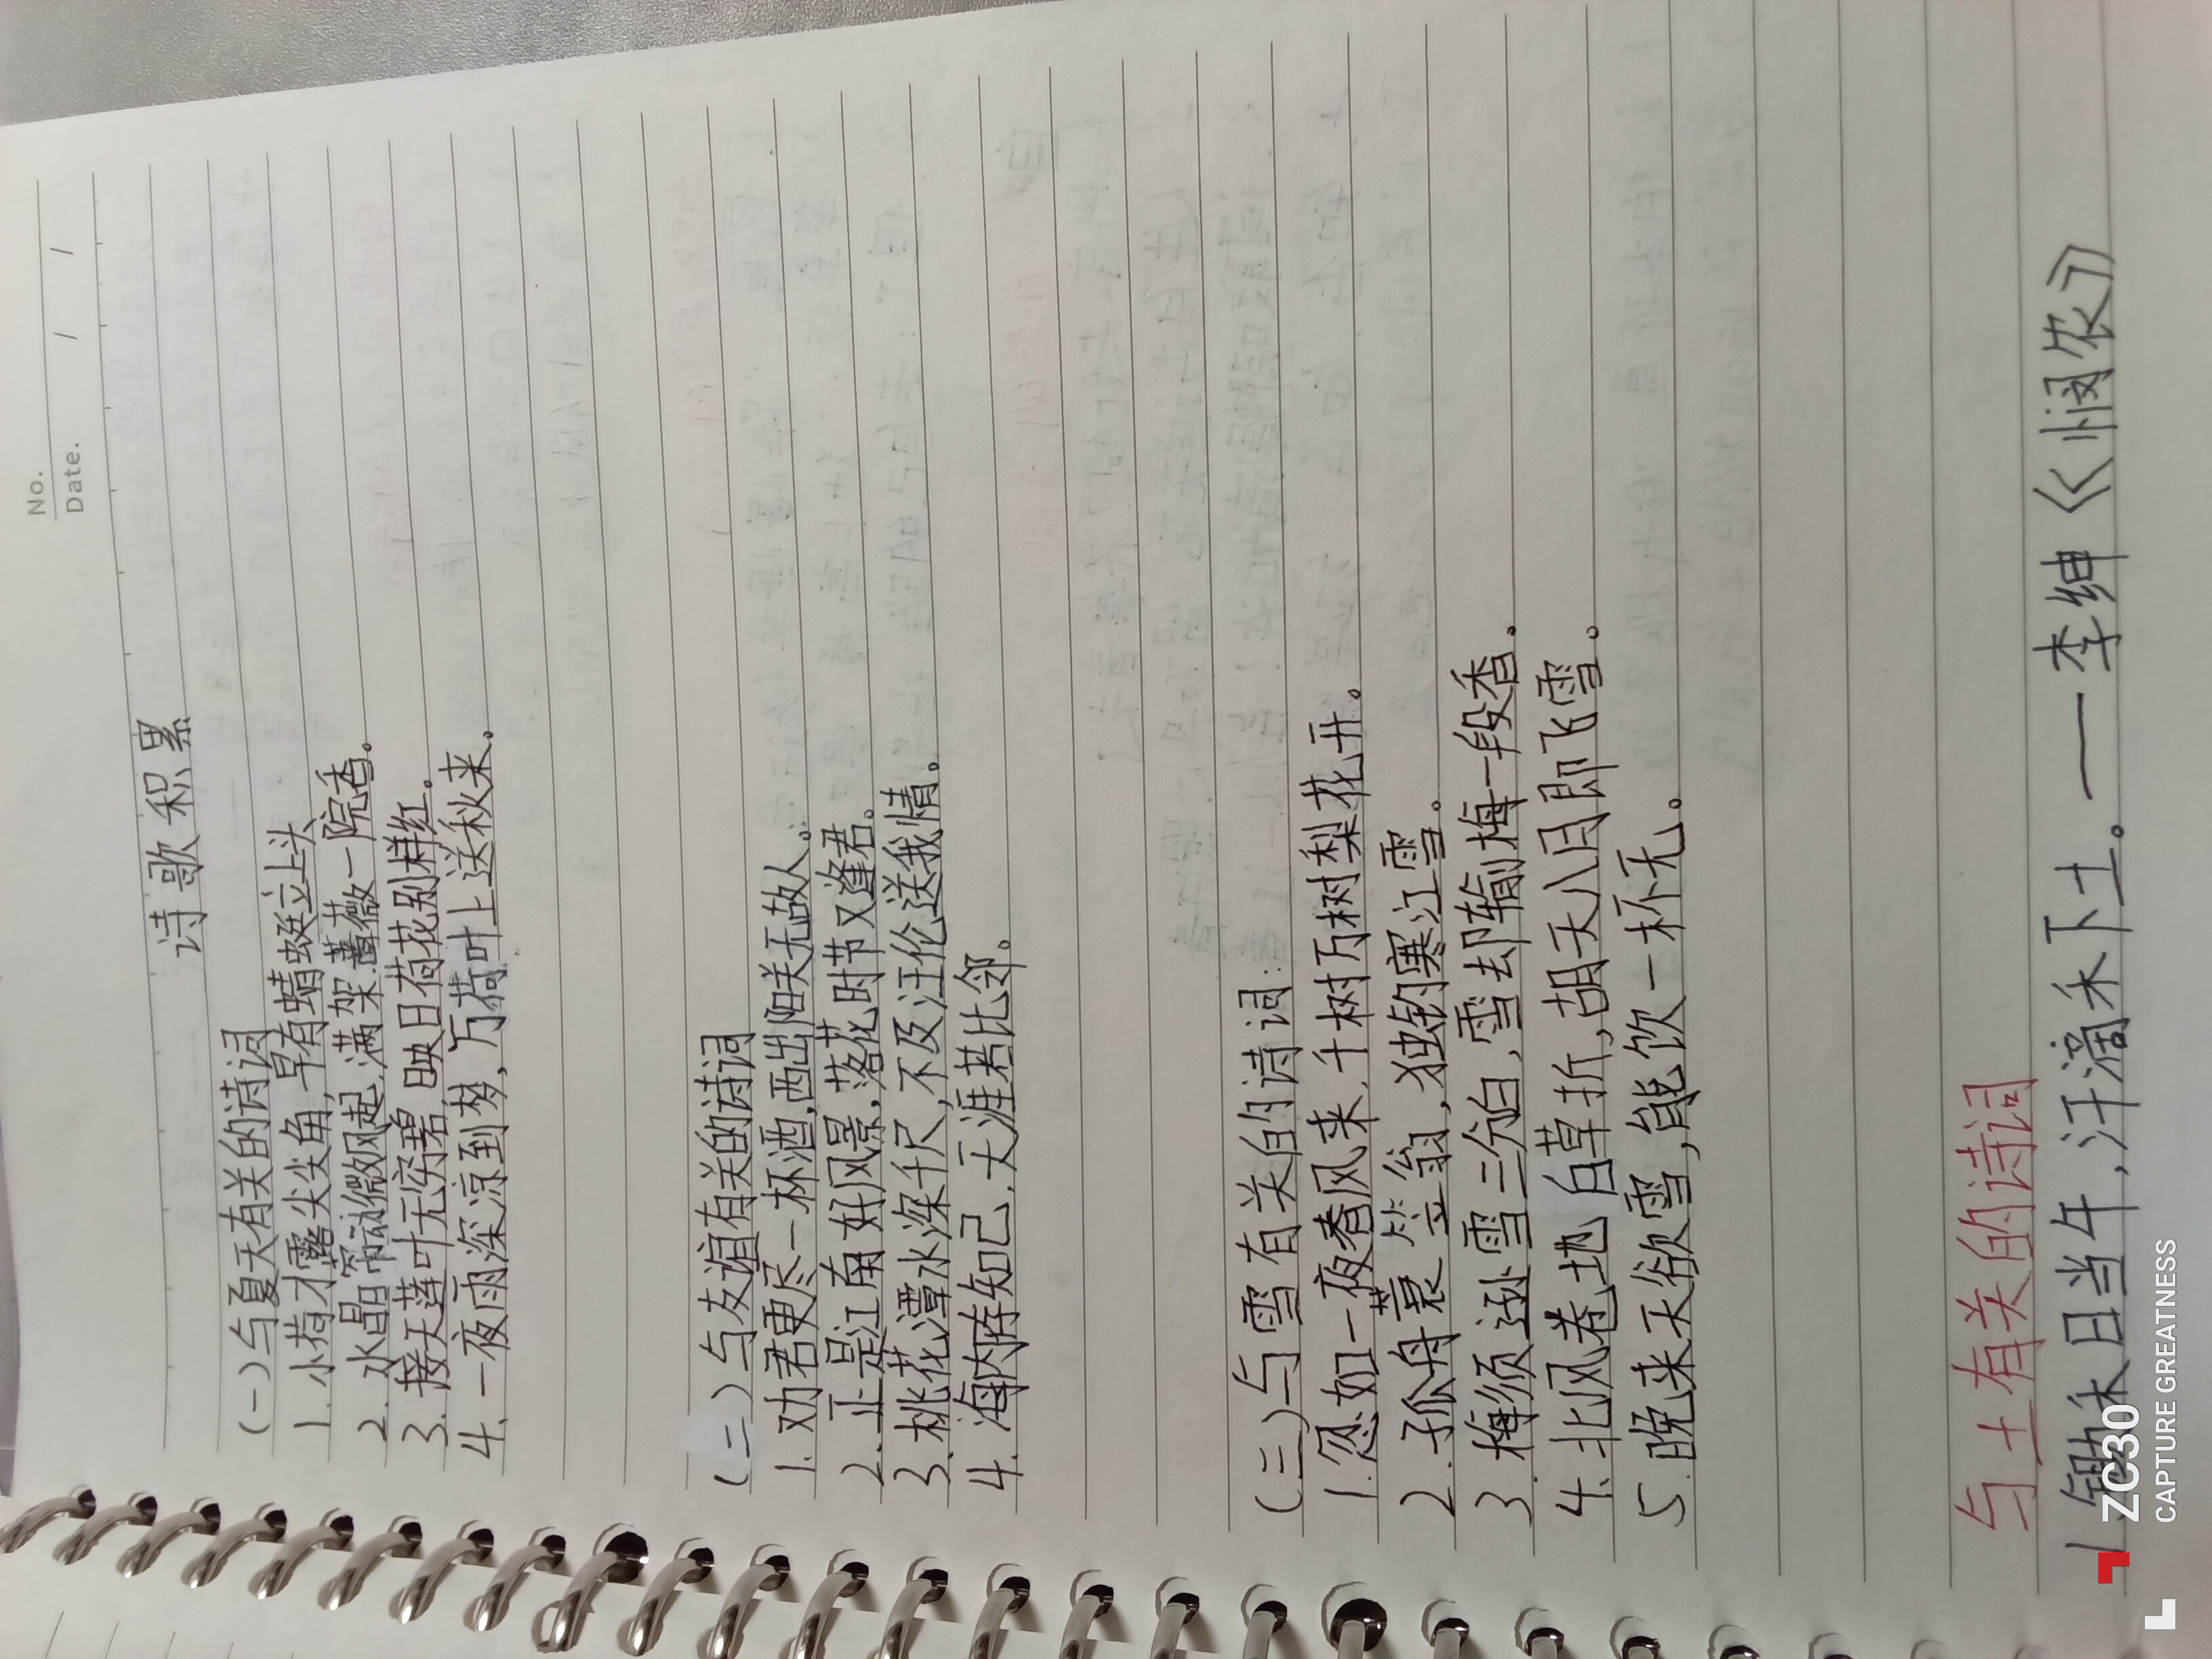 No.
Date. / /
诗歌积累
(一)与夏天有关的诗词
1.小荷才露尖尖角,早有蜻蜓立上头
2.水晶帘动微风起,满架蔷薇一院香。
3.接天莲叶无穷碧,映日荷花别样红。
4.一夜雨深凉到梦,万荷叶上送秋来。
(二)与友谊有关的诗词
1.劝君更尽一杯酒,西出阳关无故人。
2.正是江南好风景,落花时节又逢君。
3.桃花潭水深千尺,不及汪伦送我情。
4.海内存知己,天涯若比邻。
(三)与雪有关的诗词:
1.忽如一夜春风来,千树万树梨花开。
2.孤舟蓑笠翁,独钓寒江雪。
3.梅须逊雪三分白,雪却输梅一段香。
4.北风卷地白草折,胡天八月即飞雪。
5.晚来天欲雪,能饮一杯无。
与土有关的诗词
1.锄禾日当午,汗滴禾下土。——李绅《悯农》
ZC30
CAPTURE GREATNESS